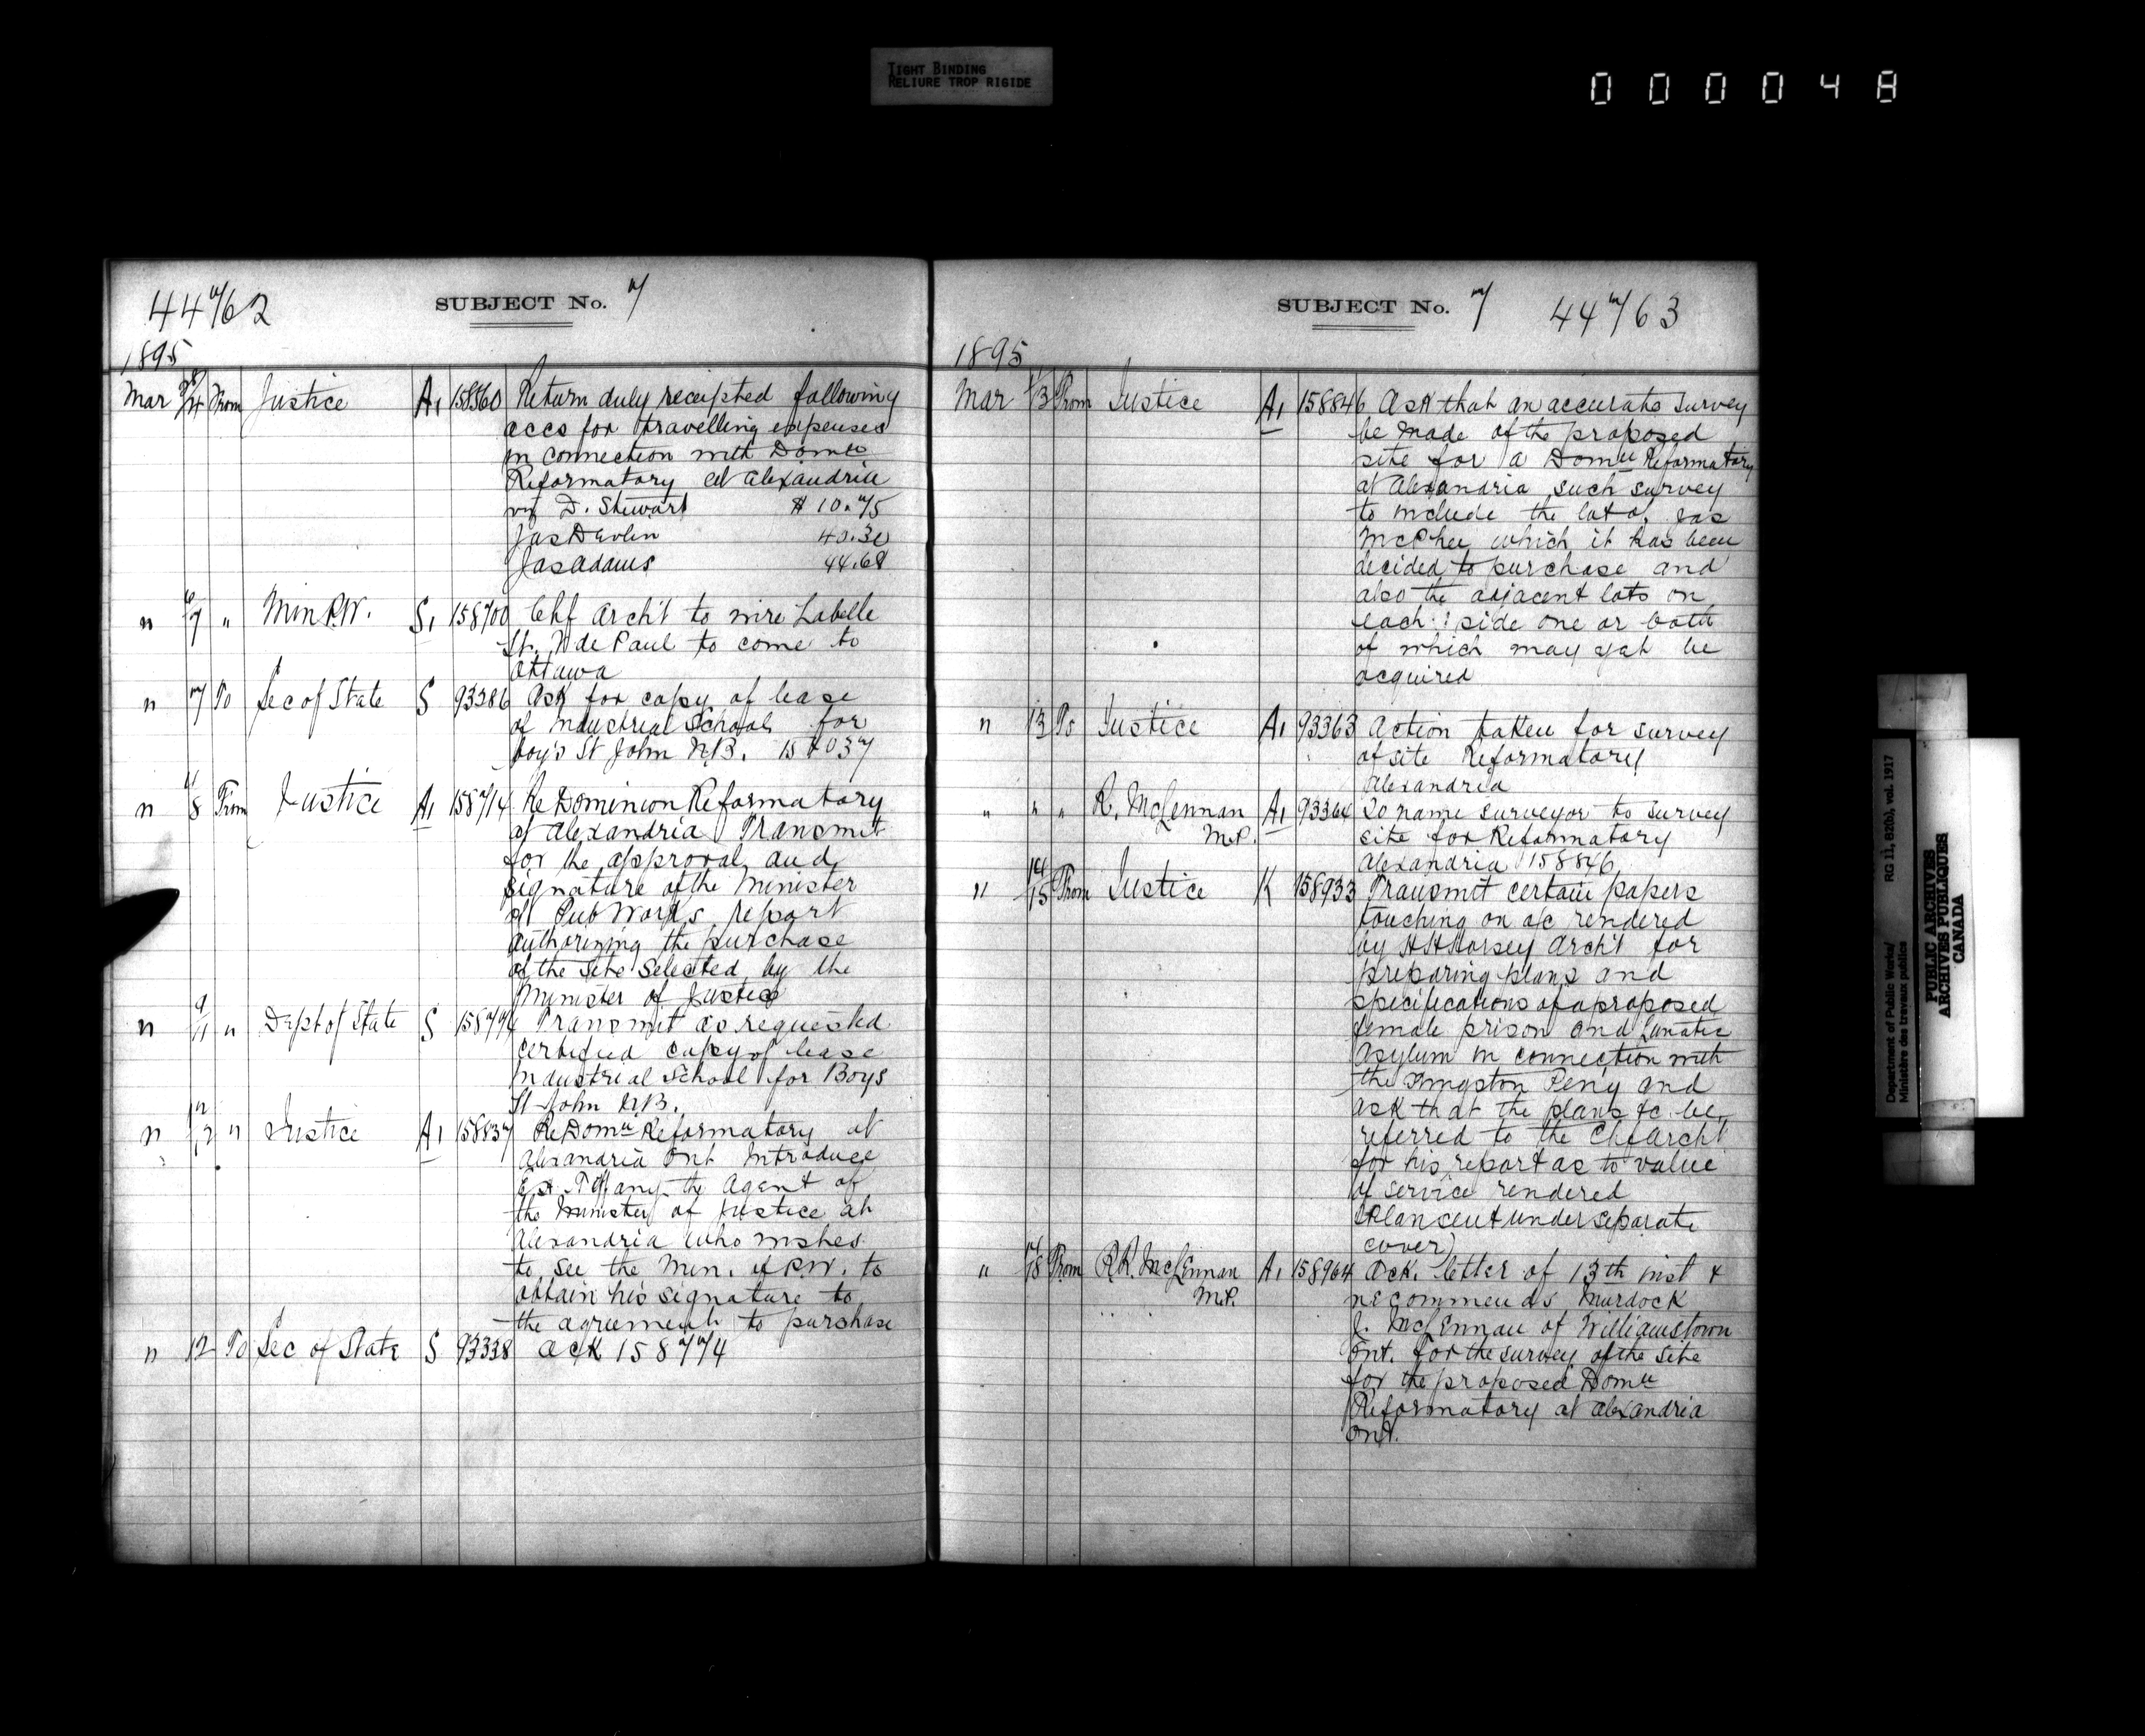 TIGHT BINDING
RELIURE TROP RIGIDE
000048
44762
SUBJECT No. 7
1895
Mar 28/4 From Justice A1 158560 Return duly receipted following
accs for travelling expenses
in connection with Domn
Reformatory at Alexandria
viz D. Stewart $10.75
Jas Devlin 40.30
Jas Adams 44.68
" 6/7 " Min P.W. S1 158700 Chf Archt to wire Labelle
St. V de Paul to come to
Ottawa
" 7 To Sec of State S 93386 Ask for copy of lease
of Industrial School for
boy's St John N.B.
" 4/8 From Justice A1 158714 Re Dominion Reformatory
at Alexandria Transmit
for the approval and
signature of the Minister
of Pub Works report
authorizing the purchase
of the site selected by the
Minister of Justice
" 9/11 " Dept of State S 158774 Transmit as requested
certified copy of lease
Industrial School for Boys
St John N.B.
" 12/12 " Justice A1 158837 Re Domn Reformatory at
Alexandria Ont Introduce
Tiffany the Agent of
the Minister of Justice at
Alexandria who wishes
to see the Min. of P.W. to
obtain his signature to
the agreement to purchase
" 12 To Sec of State S 93338 Ack 158774
SUBJECT No. 7 44763
1895
Mar 13 From Justice A1 158846 Ask that an accurate survey
be made of the proposed
site for a Domn Reformatory
at Alexandria such survey
to include the lot of Jas
McPhee which it has been
decided to purchase and
also the adjacent lots on
each side one or both
of which may yet be
acquired
" 13 To Justice A1 93363 Action taken for survey
of site Reformatory
Alexandria
" " " R. McLennan A1 93364 To name surveyor to survey
M.P. site for Reformatory
Alexandria 158846
" 14/15 From Justice K 158933 Transmit certain papers
touching on a/c rendered
by H H Horsey Archt for
preparing plans and
specifications of a proposed
female prison and Lunatic
Asylum in connection with
the Kingston Peny and
ask that the plans &c be
referred to the Chf Archt
for his report as to value
of service rendered
(Plan sent under separate
cover)
" 18 From R.R. McLennan A1 158964 Ack. letter of 13th inst &
M.P. recommends Murdock
J. McLennan of Williamstown
Ont. for the survey of the site
for the proposed Domn
Reformatory at Alexandria
Ont.
Department of Public Works/ RG 11, B2(b), vol. 1917
Ministère des travaux publics
PUBLIC ARCHIVES
ARCHIVES PUBLIQUES
CANADA